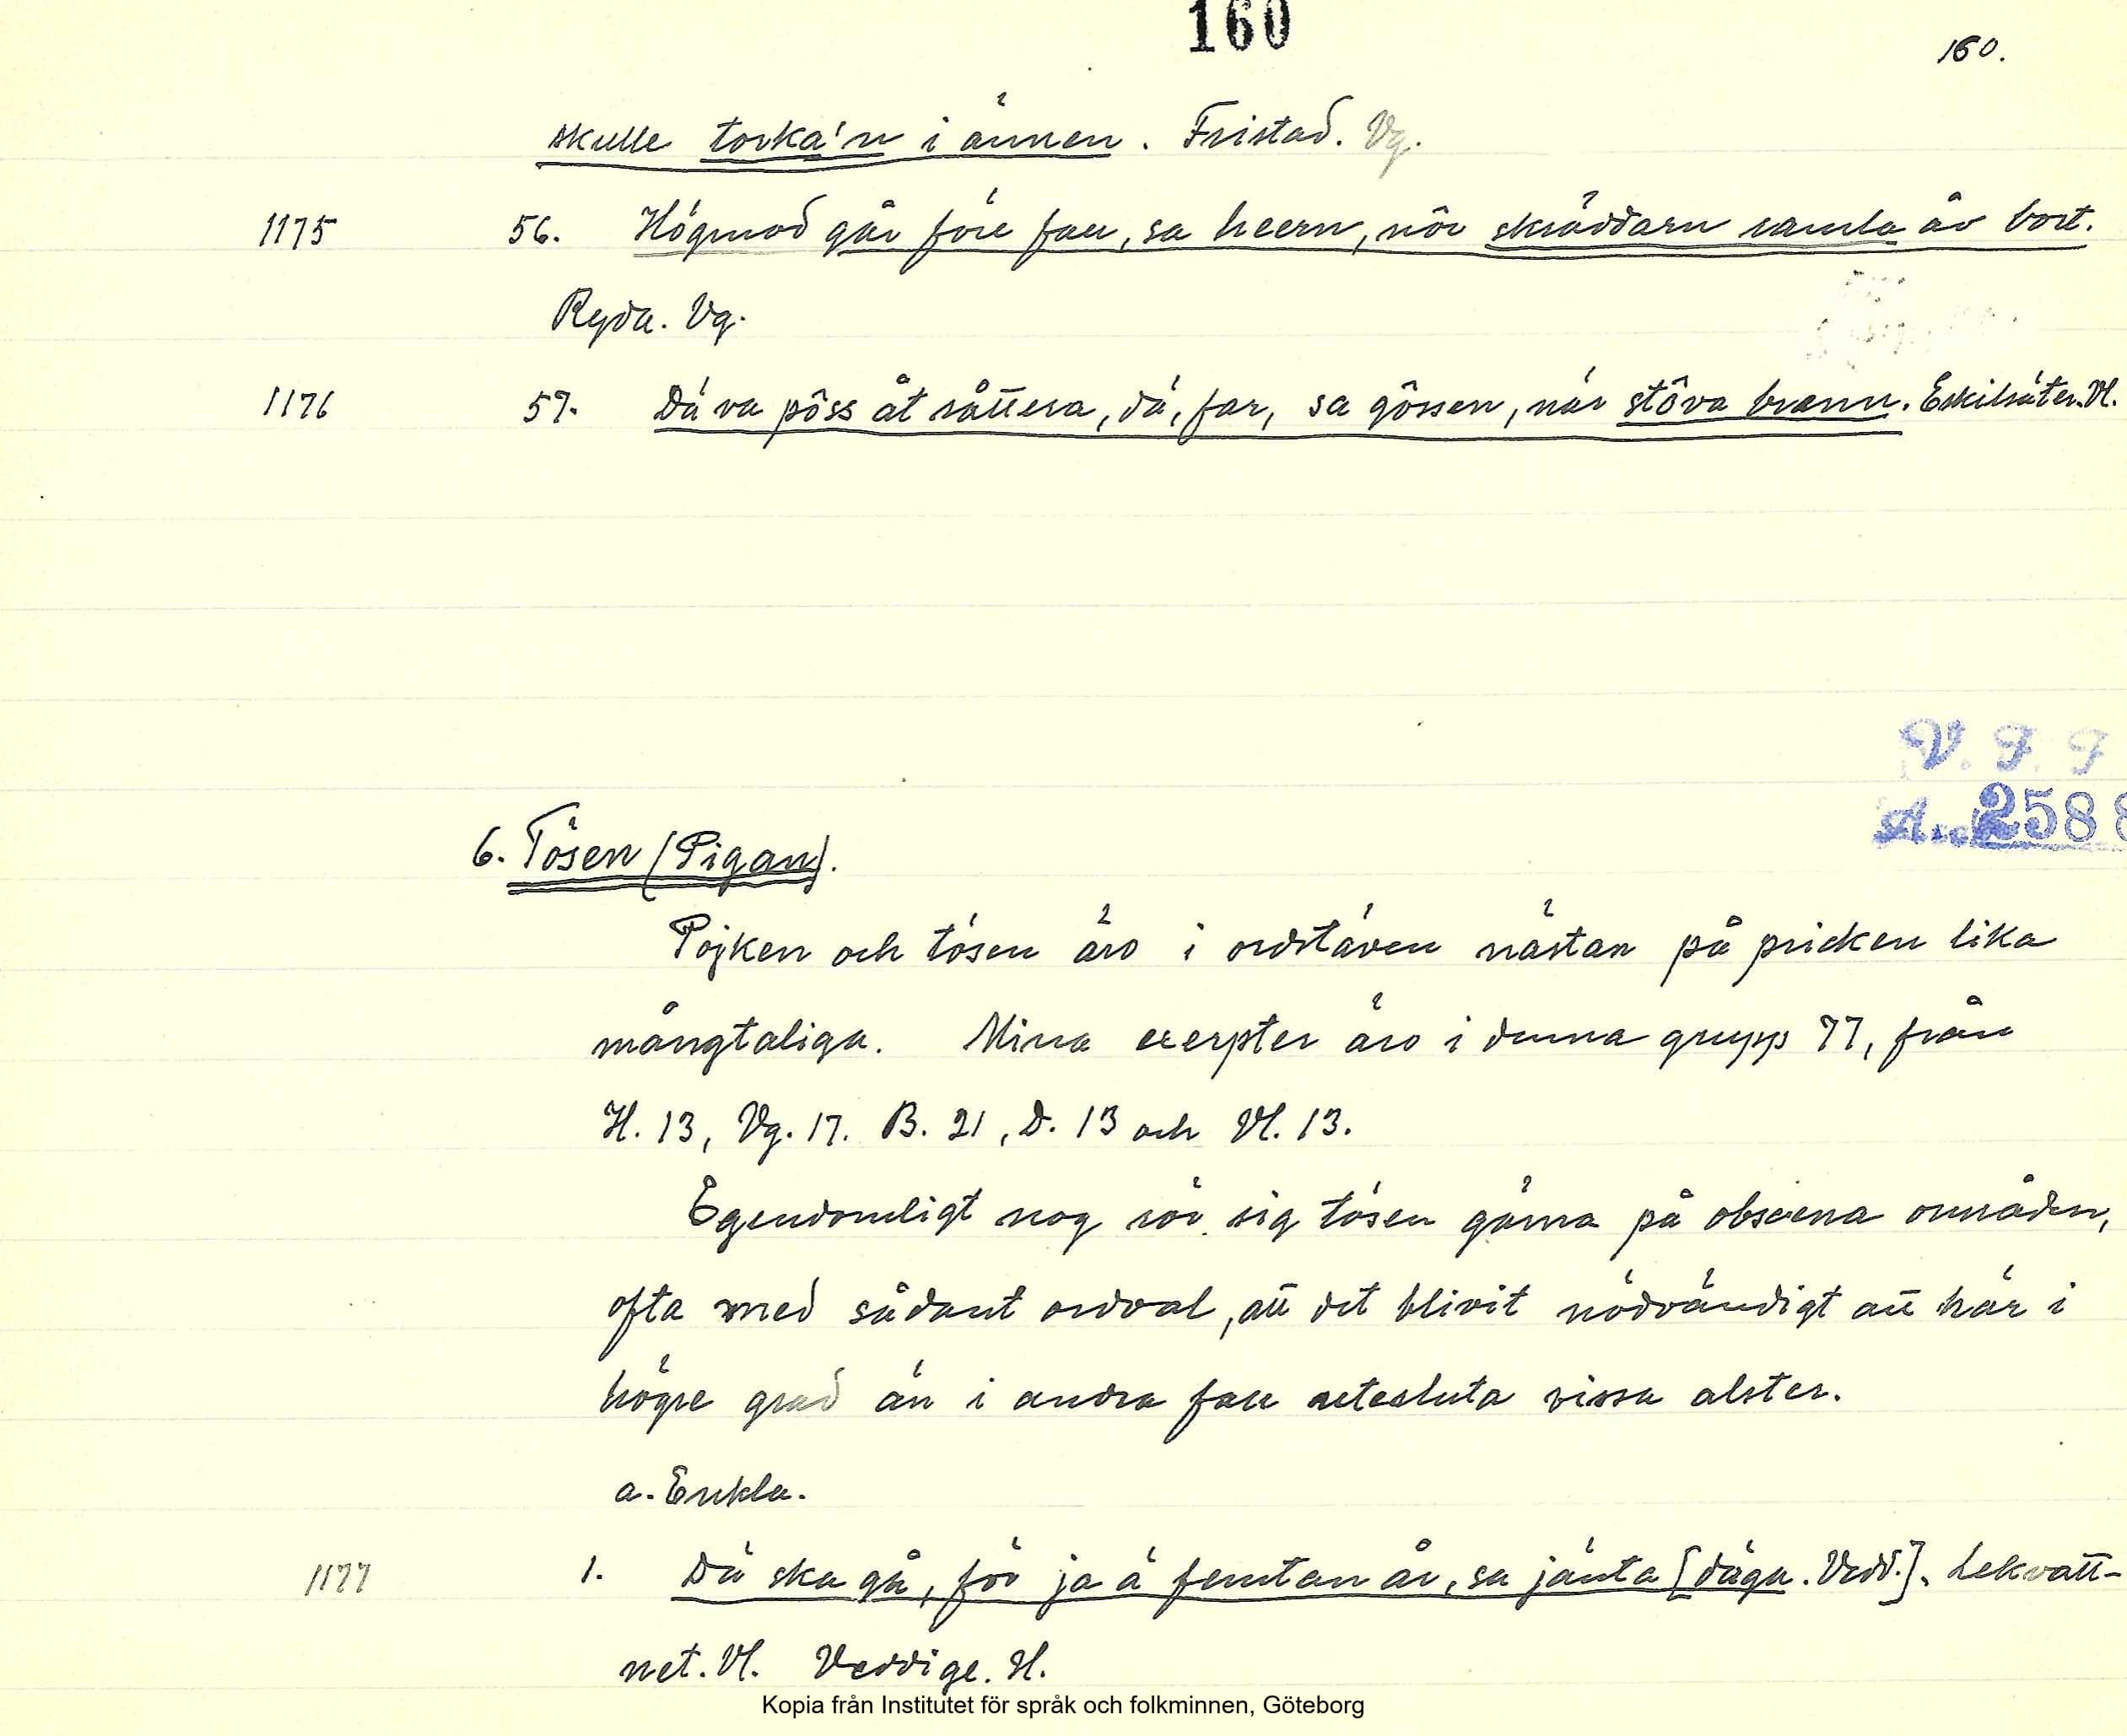 160
160.
skulle torka'n i ännen. Fristad. Vg.
1175 56. Högmod går före fall, sa heern, når skräddarn ramla åv bort.
Ryda. Vg.
1176 57. Dä va pôss åt råttera, dä, far, sa gôssen, när stôva brann. Eskilsäter. Vl.
V. F. F
Acc. 2588
6. Tösen (Pigan).
Pojken och tösen äro i ordstäven nästan på pricken lika
mångtaliga. Mina excerpter äro i denna grupp 77, från
H. 13, Vg. 17. B. 21, D. 13 och Vl. 13.
Egendomligt nog rör sig tösen gärna på obscena områden,
ofta med sådant ordval, att det blivit nödvändigt att här i
högre grad än i andra fall utesluta vissa alster.
a. Enkla.
1177 1. Dä ska gå, för ja ä femtan år, sa jänta [däga. Vedd.]. Lekvatt-
net. Vl. Veddige. H.
Kopia från Institutet för språk och folkminnen, Göteborg